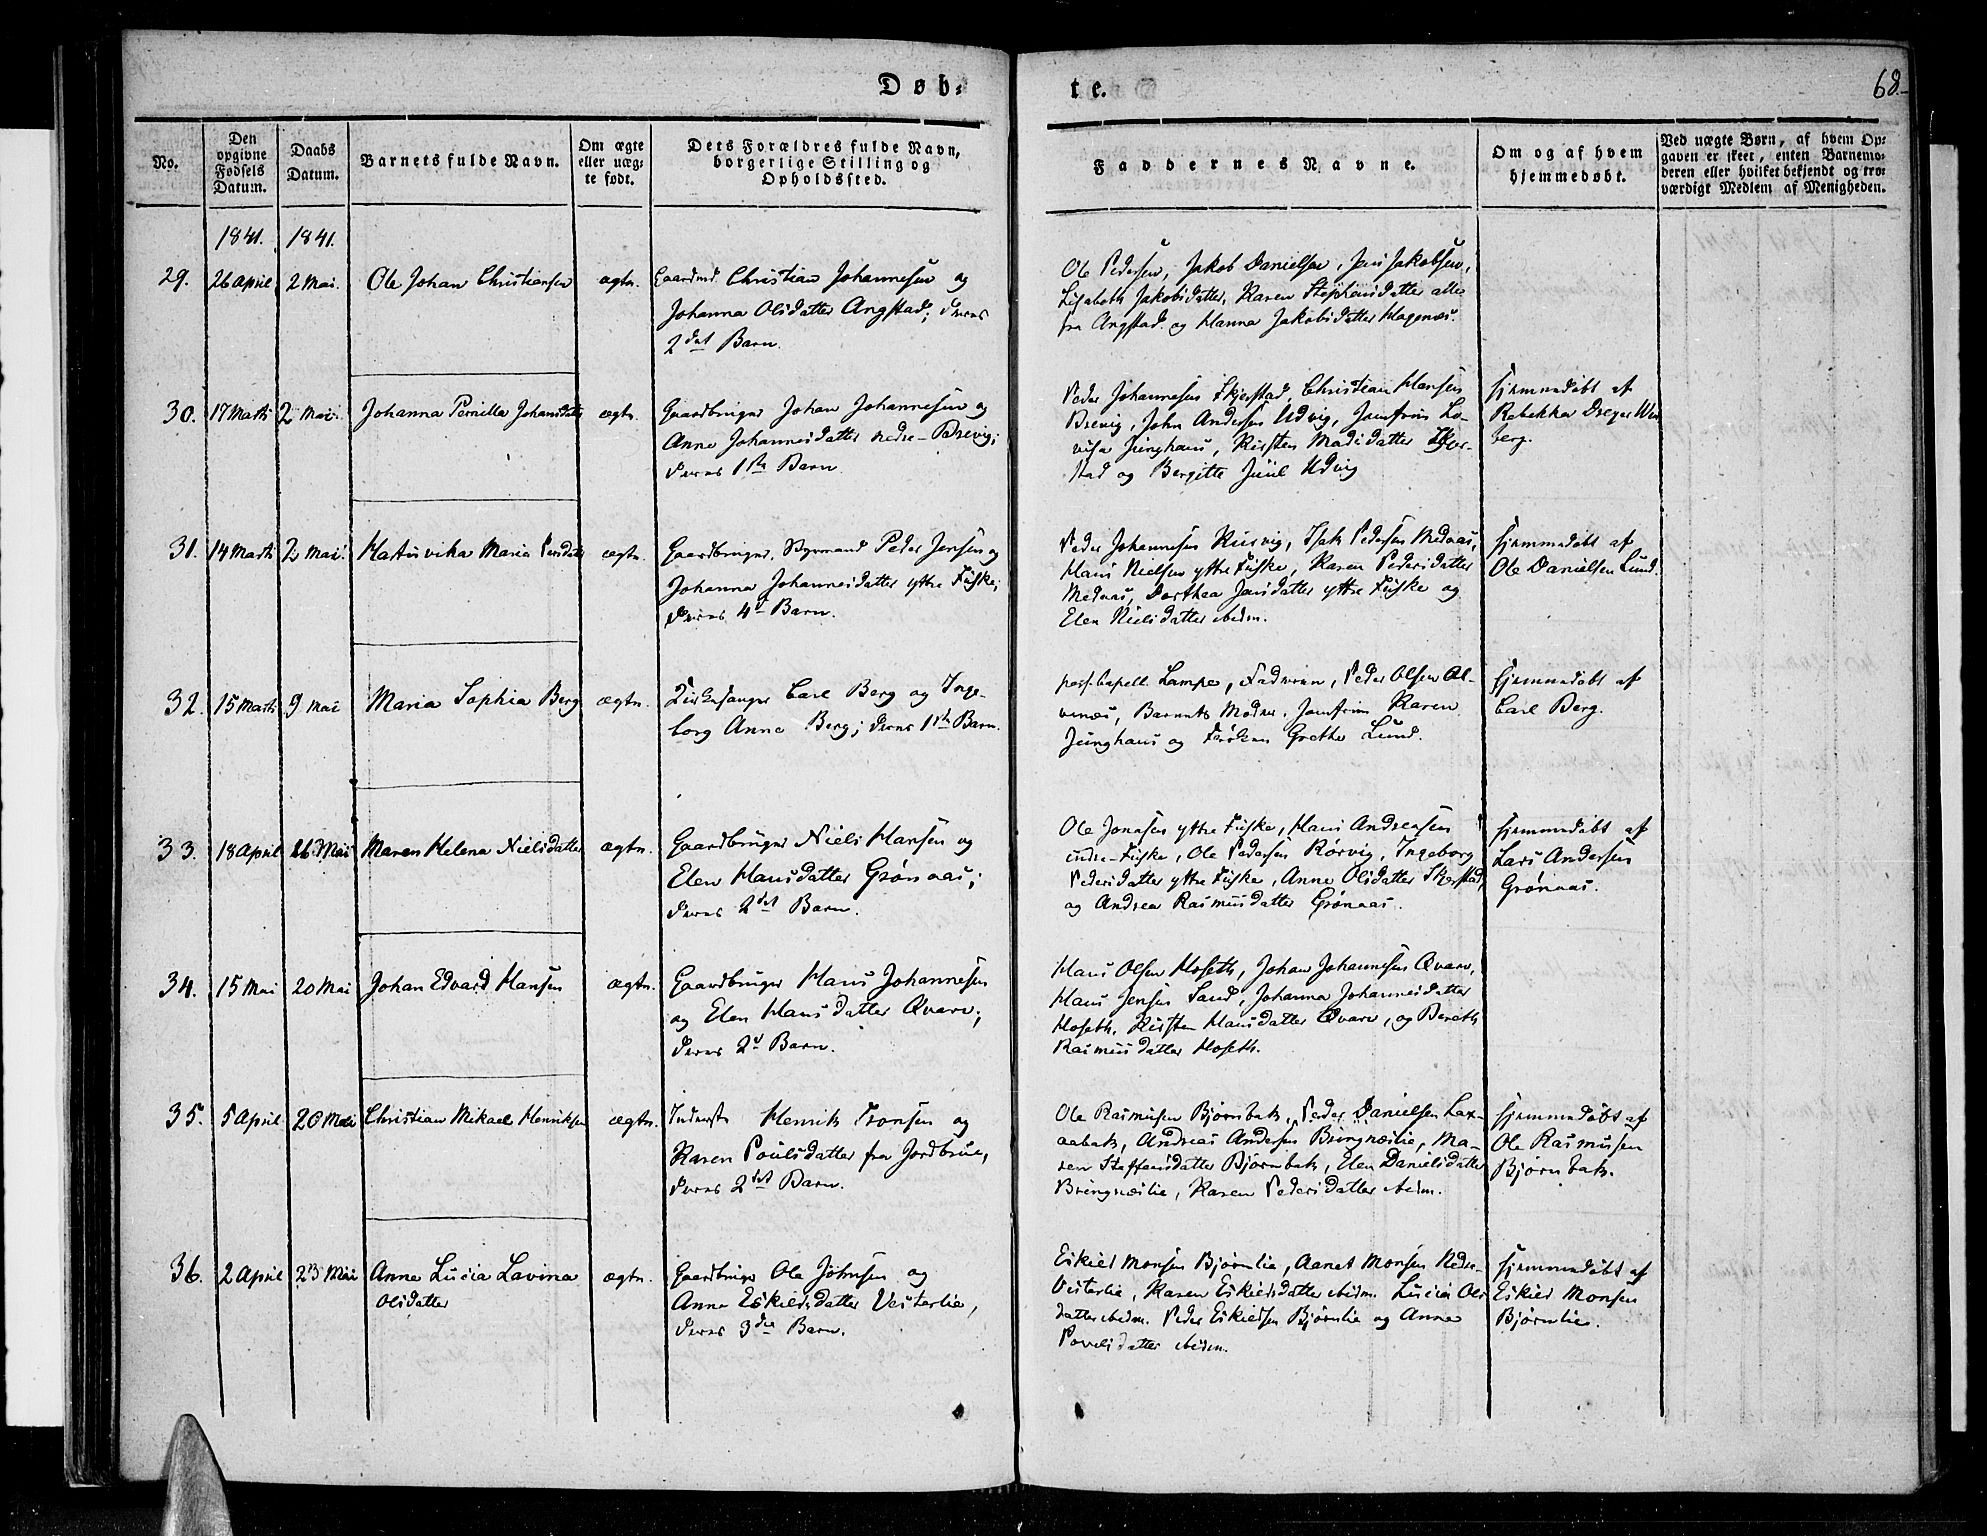 Døb-
te.
68.
No.
Den opgivne Fødsels Datum.
Daabs Datum.
Barnets fulde Navn.
Om ægte eller uægte født.
Dets Forældres fulde Navn, borgerlige Stilling og Opholdssted.
Faddernes Navne.
Om og af hvem hjemmedøbt.
Ved uægte Børn, af hvem Opgaven er skeet, enten Barnemoderen eller hvilket bekjendt og troværdigt Medlem af Menigheden.
1841. 1841.
29. 26 April 2 Mai. Ole Johan Christiansen ægte. Gaardmd Christian Johannesen og
Johanna Olsdatter Angstad; deres
2det Barn.
Ole Pedersen, Jakob Danielsen, Jens Jakobsen,
Lisabeth Jakobsdatter, Karen Stephensdatter alle
fra Angstad og Hanna Jakobsdatter Hagenæs.
30. 17 Marts 2 Mai. Johanna Pernilla Johansdatter ægte. Gaardbruger Johan Johannesen og
Anne Johannesdatter nedre-Brevig;
deres 1ste Barn.
Peder Johannesen Skjerstad, Christian Hansen
Brevig, John Andersen Udvig, Jomfrue Lo-
visa Junghans, Kirsten Madsdatter Skjer-
stad og Bergitte Juul Udvig
hjemmedøbt af
Rebekka Dreyer Win
berg.
31. 14 Marts 2 Mai. Hartvika Maria Pedersdatter ægte. Gaardbruger, Styrmand Peder Jensen og
Johanna Johannesdatter yttre Fuske;
deres 4d Barn.
Peder Johannesen Kusvig, Isak Pedersen Mednaas,
Hans Nielsen yttre Fuske, Karen Pedersdatter
Mednaas, Dorthea Jensdatter yttre Fuske og
Elen Nielsdatter ibidm.
hjemmedøbt af
Ole Danielsen Lund.
32. 15 Marts 9 Mai Maria Sophia Berg ægte. Kirkesanger Carl Berg og Inge-
borg Anne Berg; deres 1ste Barn.
pers. Capell. Lampe, Faderen, Peder Olsen Al-
venæs, Barnets Moder, Jomfrue Karen
Junghans og Frøken Grethe Lund.
hjemmedøbt af
Carl Berg.
33. 18 April 16 Mai Maren Helena Nielsdatter ægte. Gaardbruger Niels Hansen og
Elen Hansdatter Grønaas;
deres 2det Barn.
Ole Jonasen yttre Fuske, Hans Andreasen
indre-Fuske, Ole Pedersen Rørvig, Ingeborg
Pedersdatter yttre Fuske, Anne Olsdatter Skjerstad,
og Andrea Rasmusdatter Grønaas.
hjemmedøbt af
Lars Andersen
Grønaas.
34. 15 Mai 20 Mai Johan Edvard Hansen ægte. Gaardbruger Hans Johannesen
og Elen Hansdatter Qvarv;
deres 2d Barn.
Hans Olsen Hoseth, Johan Johannesen Qvarv,
Hans Jensen Sand, Johanna Johannesdatter
Hoseth, Kirsten Hansdatter Qvarv, og Bereth
Rasmusdatter Hoseth.
35. 5 April 20 Mai Christian Mikael Henriksen ægte. Inderst Henrik Tronsen og
Karen Poulsdatter fra Jordbrue,
deres 2det Barn.
Ole Rasmusen Bjørnbak, Peder Danielsen Lax-
aabak, Andreas Andersen Bringslie, Ma-
ren Steffensdatter Bjørnbak, Elen Danielsdatter
Bringslie, Karen Pedersdatter ibidm.
hjemmedøbt af
Ole Rasmusen
Bjørnbak.
36. 2 April 23 Mai Anne Lucia Lavina ægte. Gaardbruger Ole Johnsen og
Olsdatter
Anne Eskildsdatter Vesterlie,
deres 3die Barn.
Eskild Monsen Bjørnlie, Aanet Monsen Neder-
Vesterlie, Karen Eskildsdatter ibidm. Lucia Ols
datter ibidm. Peder Eskildsen Bjørnlie og Anne
Povelsdatter ibidm.
hjemmedøbt af
Eskild Monsen
Bjørnlie.